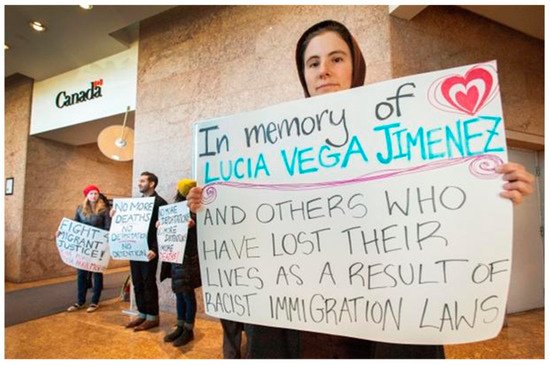 Canada
In memory of
LUCIA VEGA JIMENEZ
AND OTHERS WHO
HAVE LOST THEIR
LIVES AS A RESULT OF
RACIST IMMIGRATION LAWS
FIGHT 4
MIGRANT
JUSTICE!
NO MORE
DEATHS
NO
NO
DETENTION
NO MORE